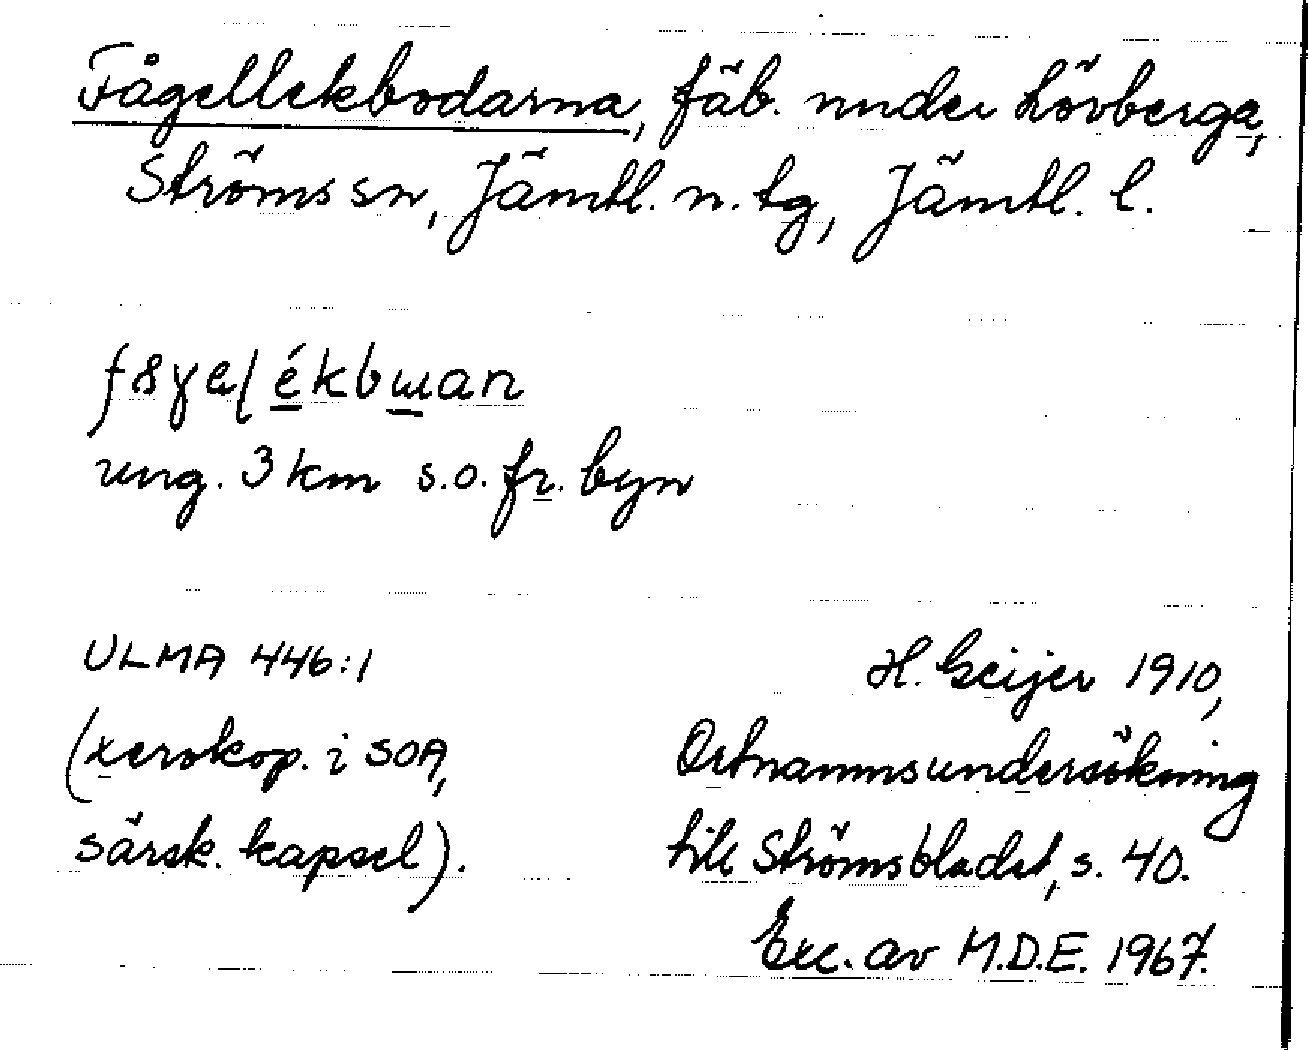 Fågellekbodarna, fäb. under Lövberga,
Ströms sn, Jämtl. n. tg, Jämtl. l.
ung. 3 km s.o. fr. byn
ULMA 446:1
H. Geijer 1910,
(xerokop. i SOA,
Ortnamnsundersökning
särsk. kapsel).
till Strömsbladet, s. 40.
Exc. av M.D.E. 1967.